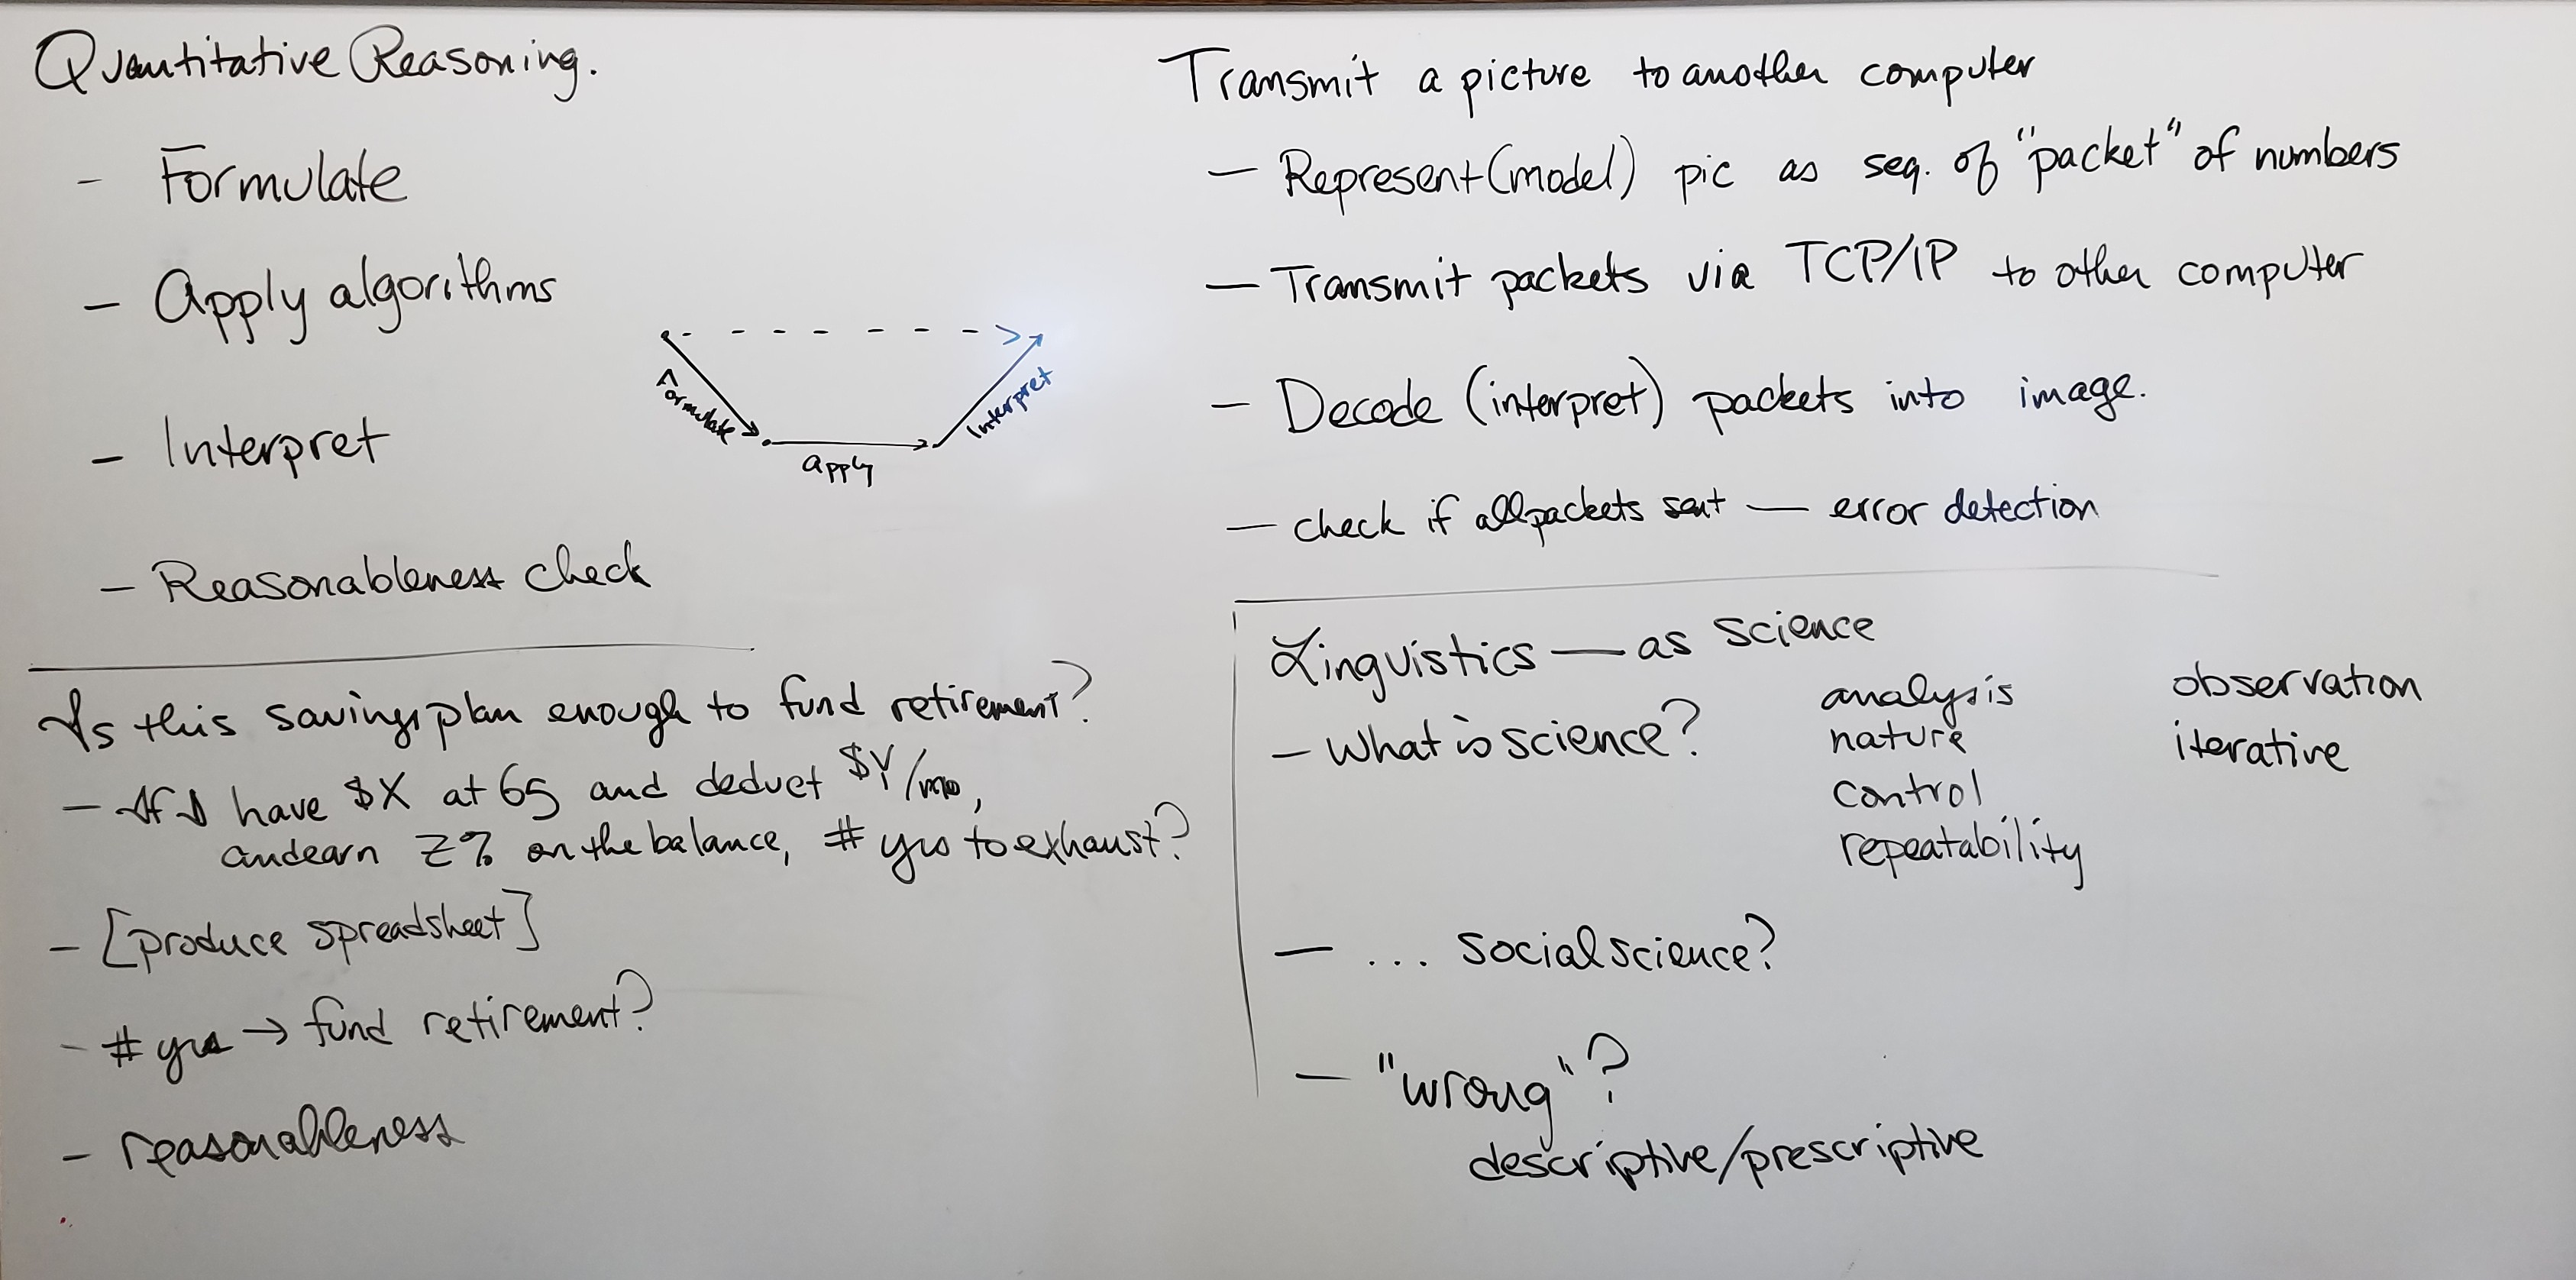 Quantitative Reasoning.
- Formulate
- Apply algorithms
- Interpret
- Reasonableness check
Formulate
apply
Interpret
Is this savings plan enough to fund retirement?
- If I have $X at 65 and deduct $Y/mo,
and earn Z% on the balance, # yrs to exhaust?
- [produce spreadsheet]
- # yrs → fund retirement?
- reasonableness
Transmit a picture to another computer
- Represent (model) pic as seq. of "packet" of numbers
- Transmit packets via TCP/IP to other computer
- Decode (interpret) packets into image.
- check if all packets sent - error detection
Linguistics - as science
- What is science?
analysis
nature
control
repeatability
observation
iterative
- ... social science?
- "wrong"?
descriptive/prescriptive